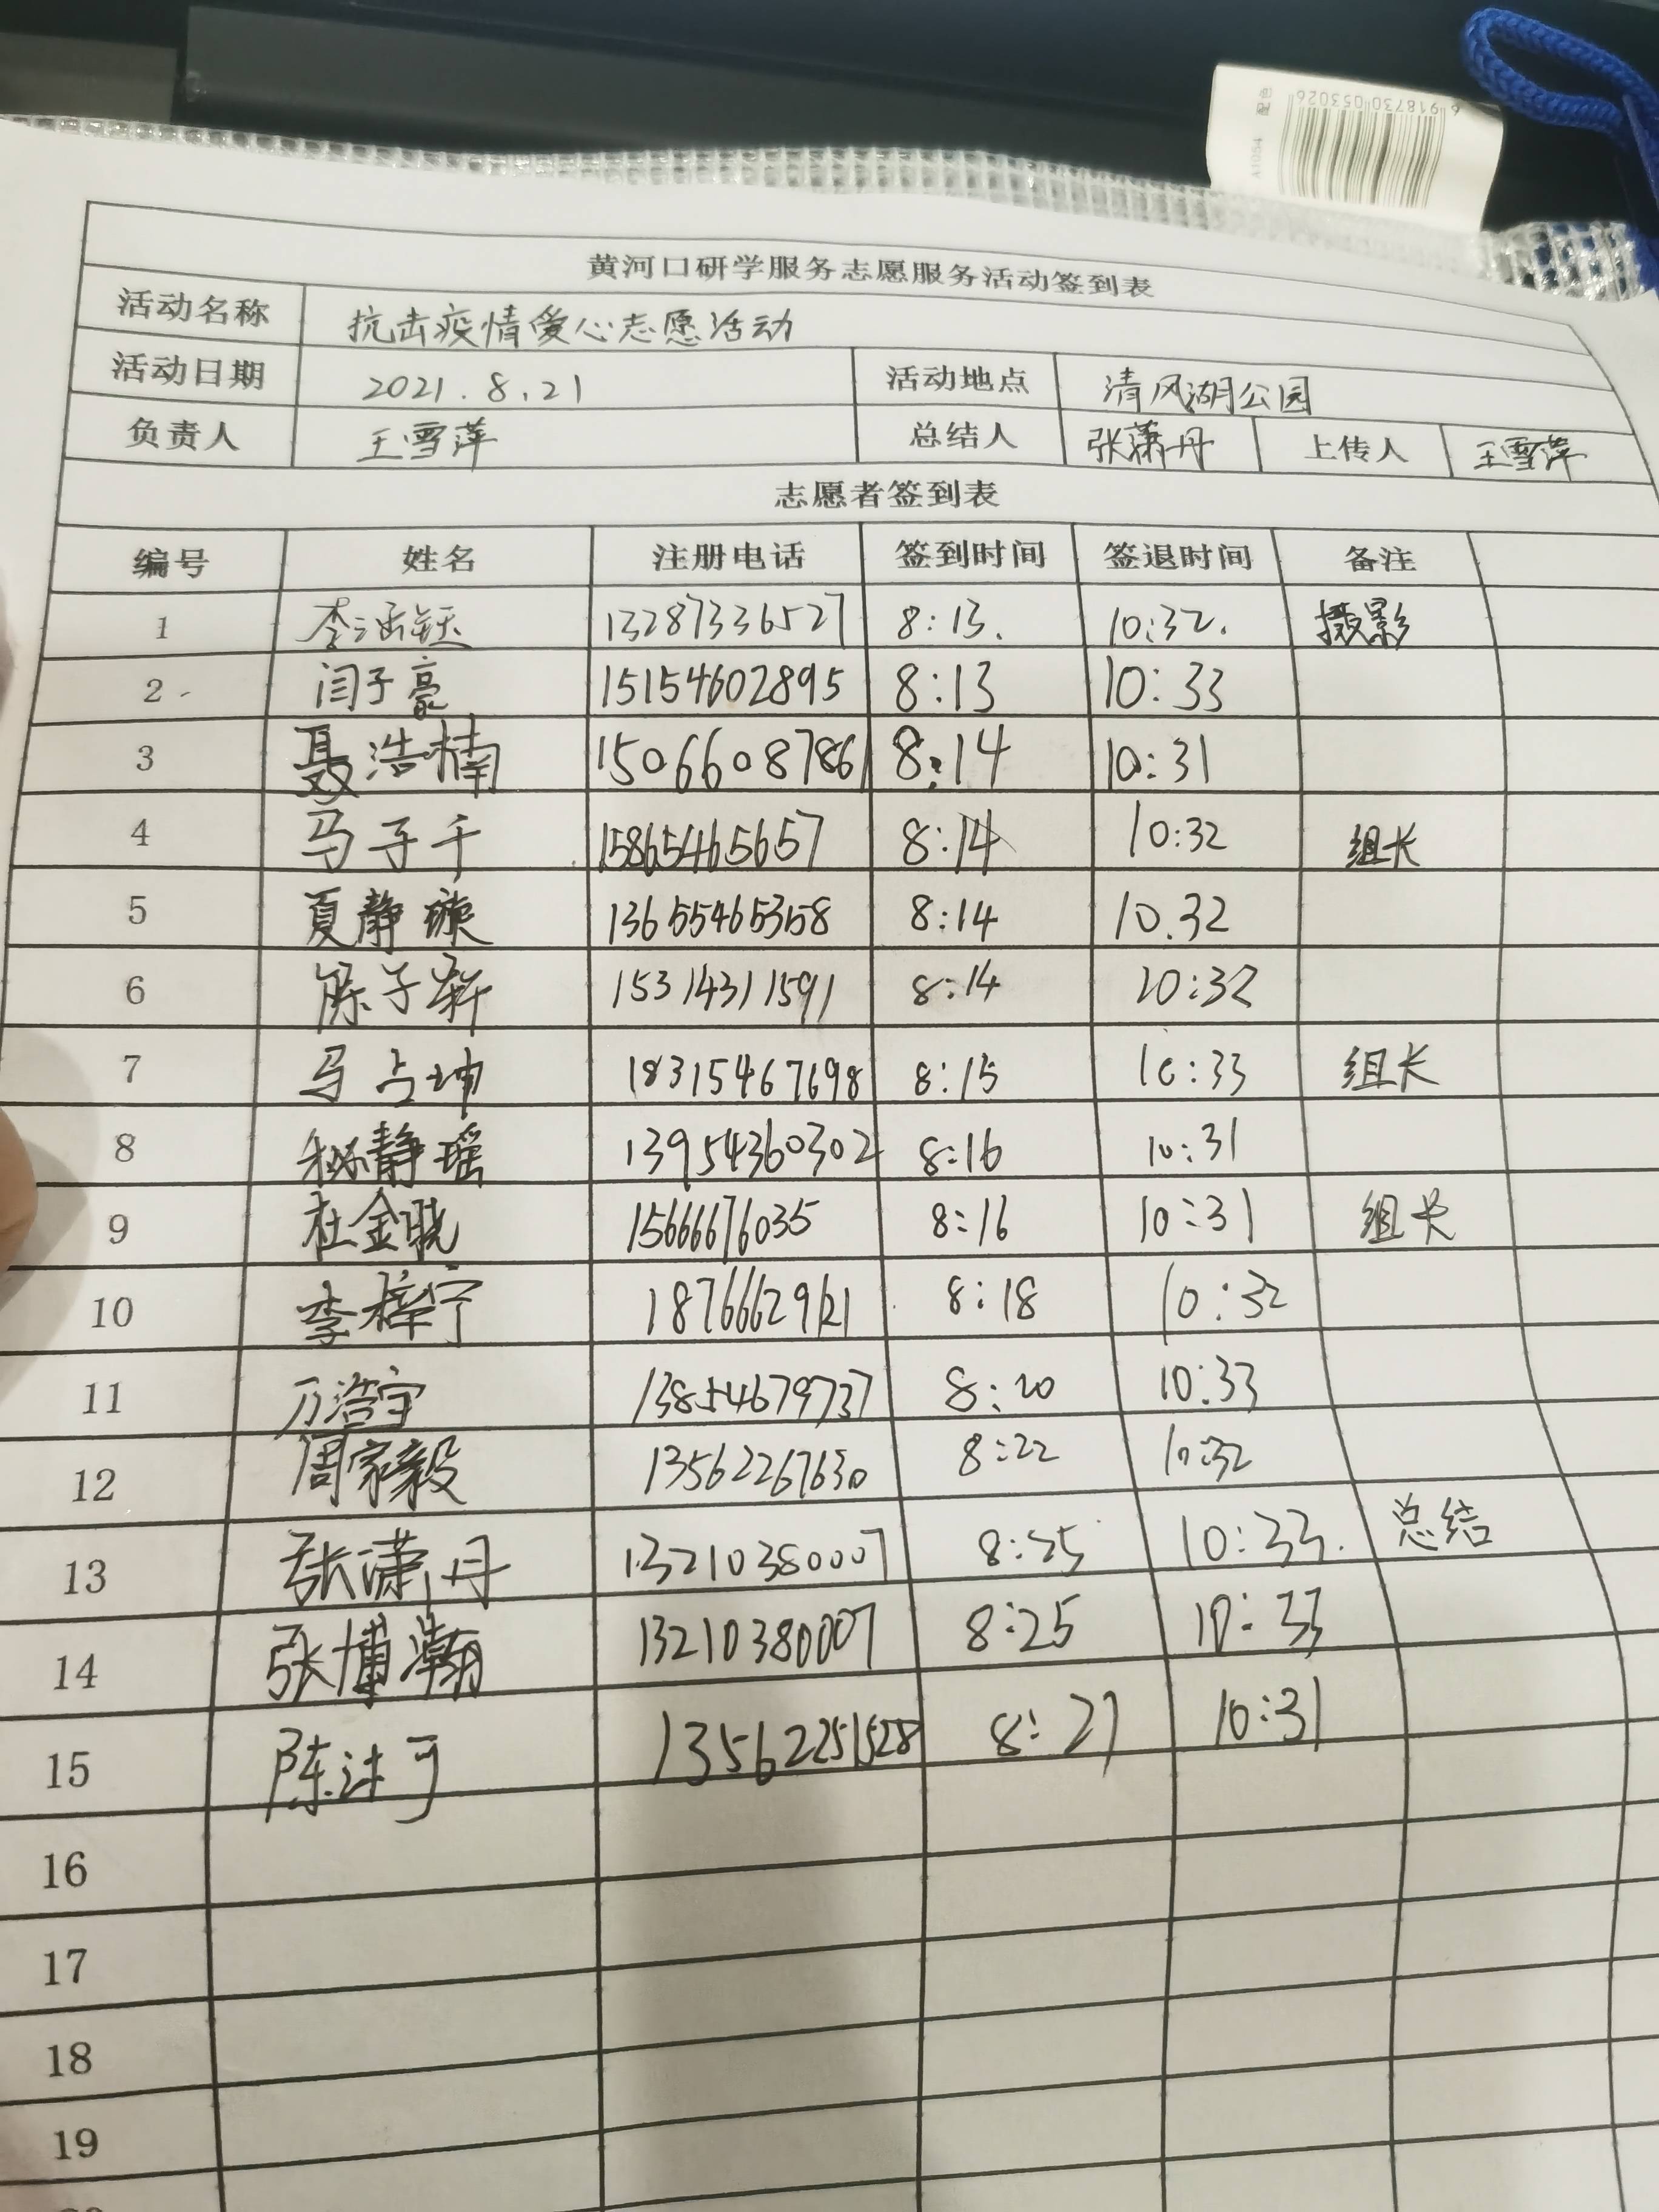 6918730053026
A1054 配色
黄河口研学服务志愿服务活动签到表
活动名称 抗击疫情爱心志愿活动
活动日期 2021.8.21 活动地点 清风湖公园
负责人 王雪萍 总结人 张潇丹 上传人 王雪萍
志愿者签到表
编号 姓名 注册电话 签到时间 签退时间 备注
1 李涵钰 13287336527 8:13. 10:32. 摄影
2 闫子豪 15154602895 8:13 10:33
3 聂浩楠 15066087861 8:14 10:31
4 马子千 15865465657 8:14 10:32 组长
5 夏静璇 13655465358 8:14 10.32
6 陈子轩 15314311591 8:14 10:32
7 马占坤 18315467698 8:15 10:33 组长
8 静瑶 13954360302 8:16 10:31
9 杜金晓 15666676035 8:16 10:31 组长
10 李梓宁 18766629121 8:18 10:32
11 万浩宇 13854679737 8:20 10:33
12 周家毅 13562267630 8:22 10:32
13 张潇丹 13210380007 8:25 10:33. 总结
14 张博瀚 13210380007 8:25 10:33
15 陈沣可 13562251528 8:27 10:31
16
17
18
19